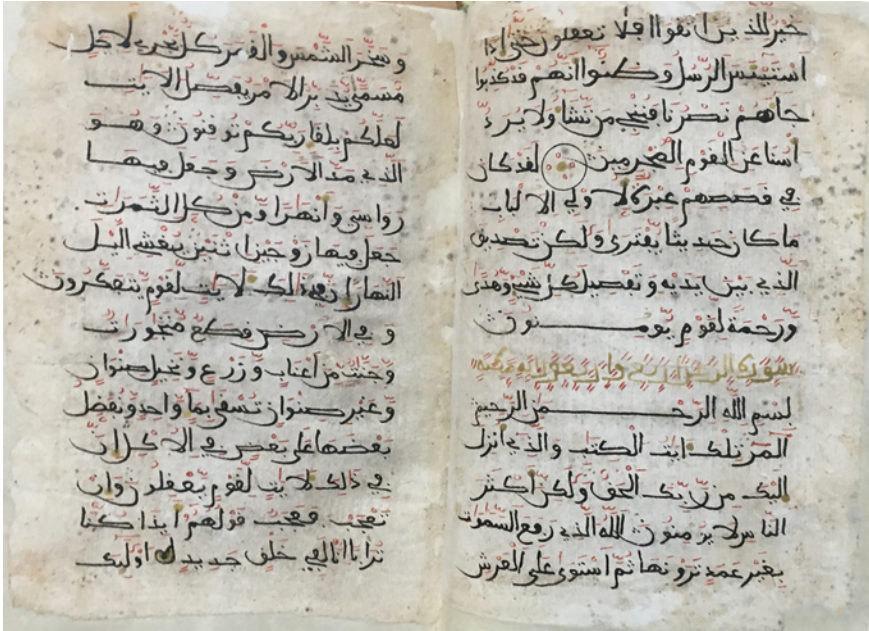 خير للذين اتقوا افلا تعقلون حتى اذا
استيئس الرسل وظنوا انهم قد كذبوا
جاهم نصرنا فننجي من نشا ولا يرد
باسنا عن القوم المجرمين لقد كان
في قصصهم عبرة لاولي الالباب
ما كان حديثا يفترى ولكن تصديق
الذي بين يديه وتفصيل كل شيء وهدى
ورحمة لقوم يومنون
سورة الرعد اربع واربعون اية مكية
بسم الله الرحمن الرحيم
المر تلك ايت الكتب والذي انزل
اليك من ربك الحق ولكن اكثر
الناس لا يومنون الله الذي رفع السموات
بغير عمد ترونها ثم استوى على العرش
وسخر الشمس والقمر كل يجري لاجل
مسمى يدبر الامر يفصل الايت
لعلكم بلقا ربكم توقنون وهو
الذي مد الارض وجعل فيها
رواسي وانهرا ومن كل الثمرات
جعل فيها زوجين اثنين يغشي اليل
النهار ان في ذلك لايت لقوم يتفكرون
وفي الارض قطع متجورات
وجنت من اعناب وزرع ونخيل صنوان
وغير صنوان تسقى بما واحد ونفضل
بعضها على بعض في الاكل ان
في ذلك لايت لقوم يعقلون وان
تعجب فعجب قولهم ايذا كنا
ترابا انا لفي خلق جديد اوليك